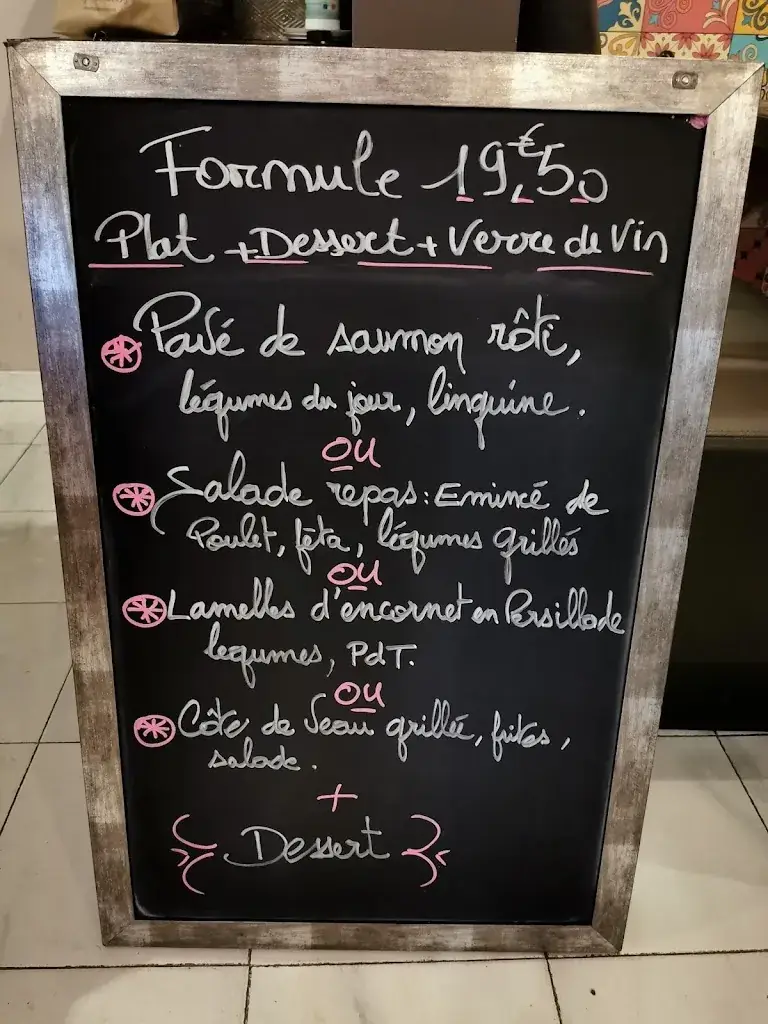 Formule 19,€50
Plat + Dessert + Verre de Vin
Pavé de saumon rôti,
légumes du jour, linguine.
OU
Salade repas: Emincé de
Poulet, fêta, légumes grillés
OU
Lamelles d'encornet en Persillade
legumes, PdT.
OU
Côte de Veau grillée, frites,
salade.
+
Dessert